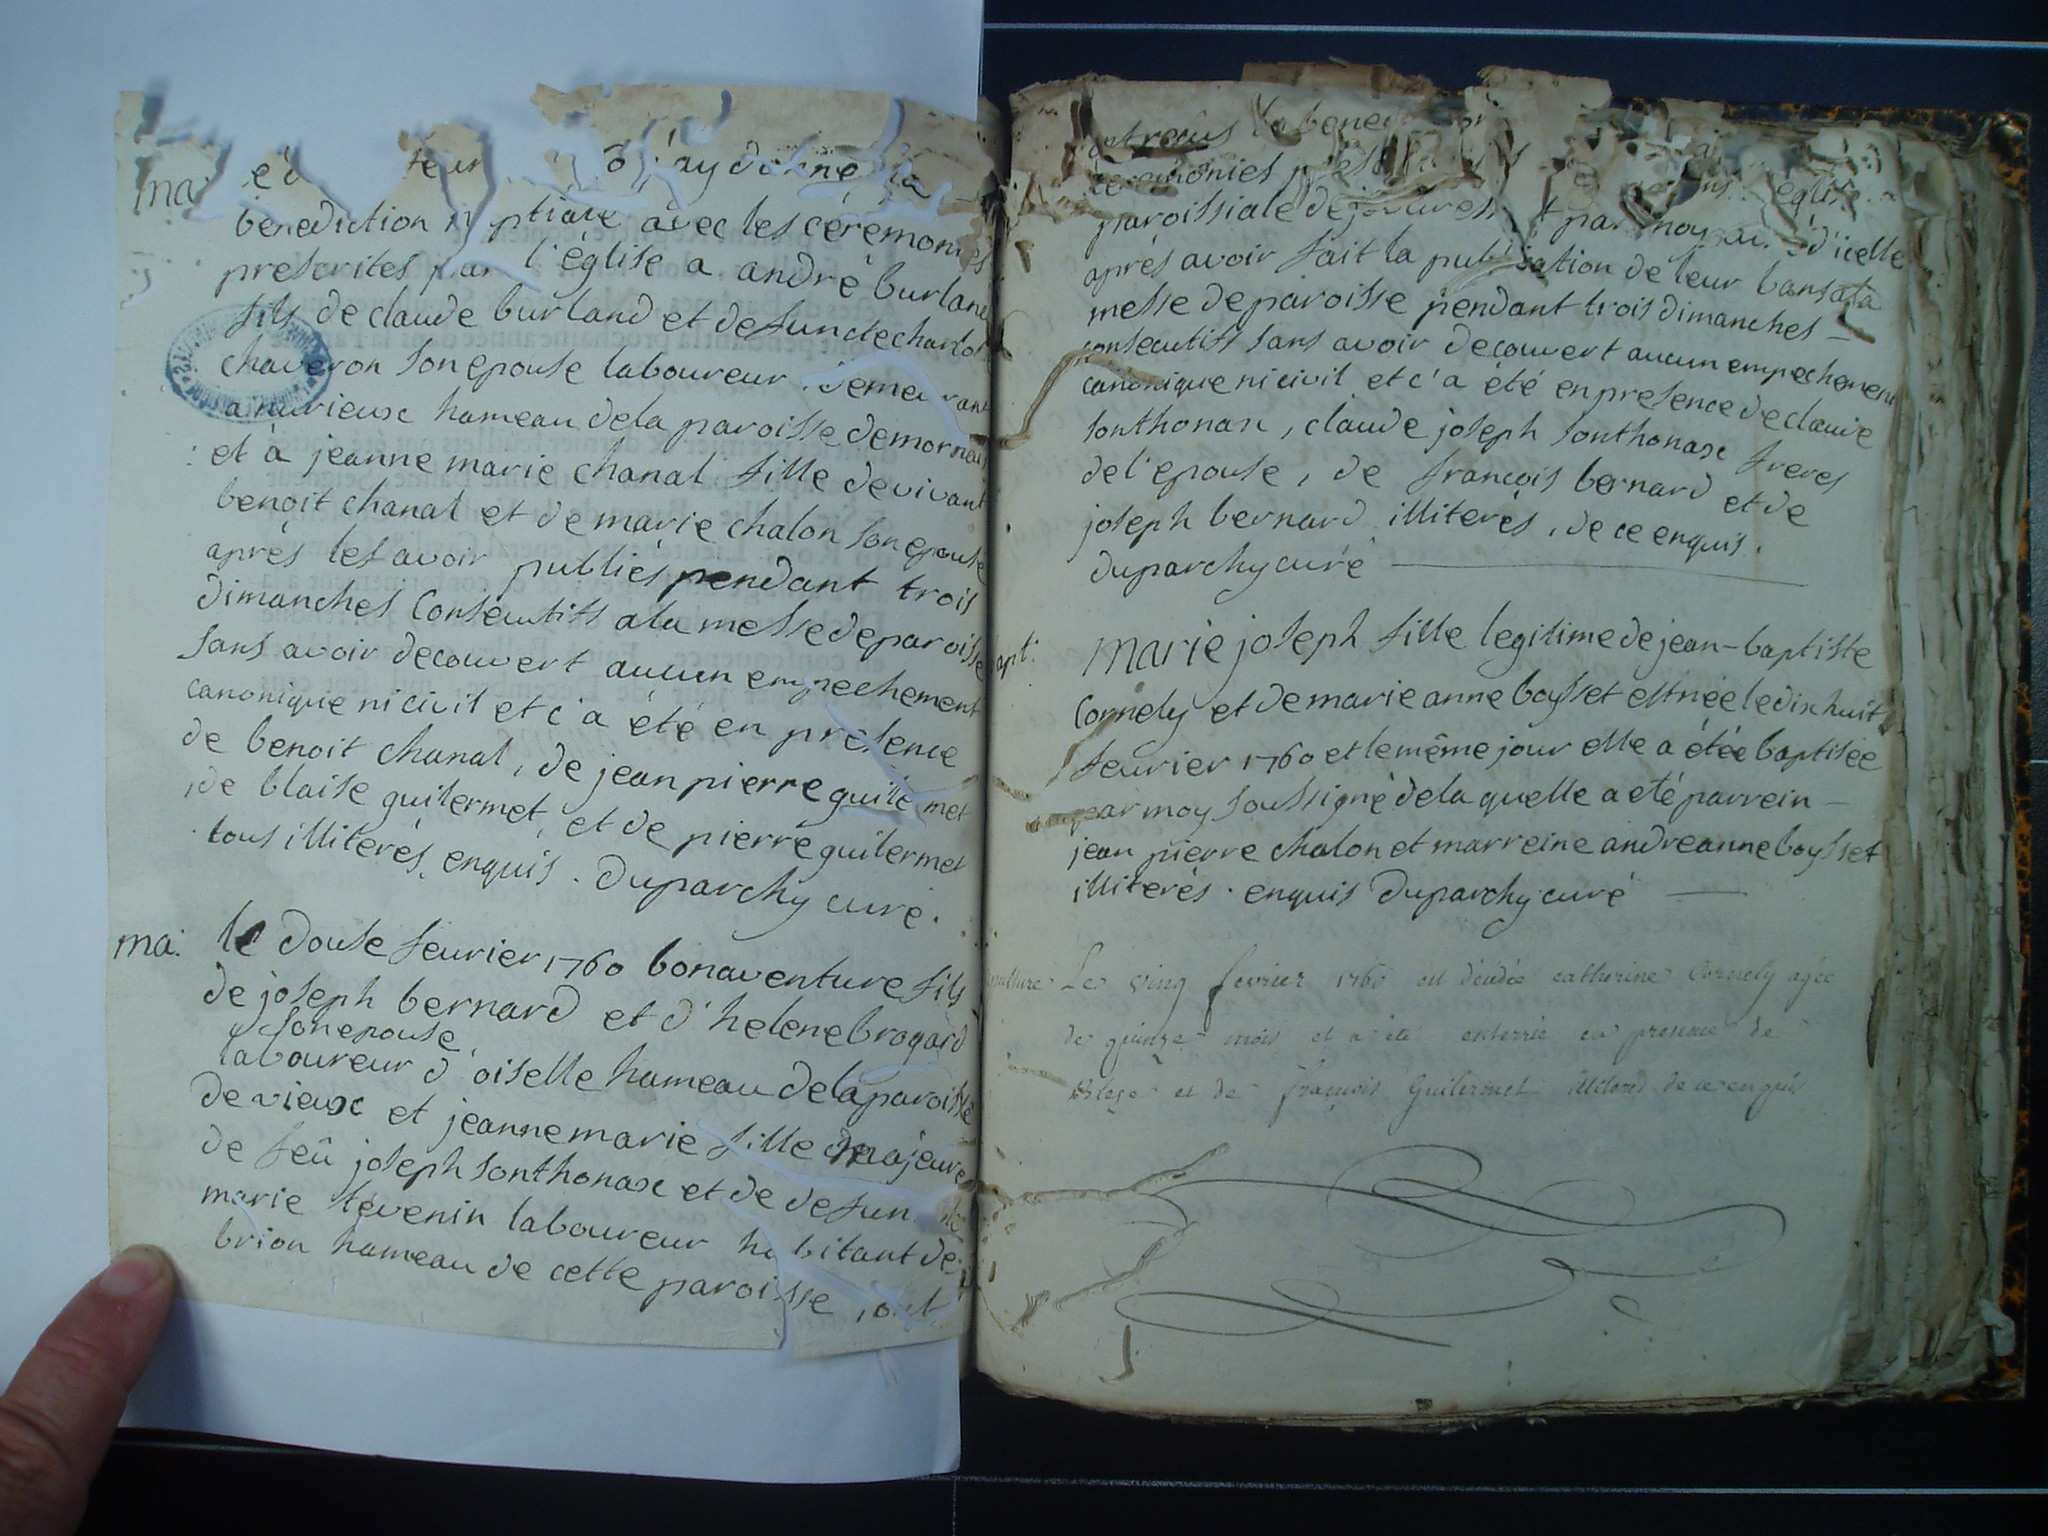 ma.
j'ay donné la
benediction nuptiale avec les cérémonies
prescrites par l'église a andré burland
fils de claude burland et defuncte charlot
chaveron son epouse laboureur demeurant
a nurieux hameau de la paroisse de mornay
et à jeanne marie chanal fille de vivant
benoit chanal et de marie chalon son epouse
aprés les avoir publiés pendant trois
dimanches consécutifs a la messe de paroisse
sans avoir decouvert aucun empechement
canonique ni civil et c'a été en presence
de benoit chanal, de jean pierre guilermet
de blaise guilermet, et de pierre guilermet
tous illiterés enquis. duparchy curé.
ma: le douse feurier 1760 bonaventure fils
de joseph bernard et d'helene brogard
son epouse
laboureur d'oiselle hameau de la paroisse
de vieux et jeanne marie fille majeure
de feû joseph sonthonax et de defuncte
marie tévenin laboureur habitant de
brion hameau de cette paroisse, ont
ont reçus la benediction
ceremonies église
paroissiale de par moy curé d'icelle
aprés avoir fait la publication de leur bans a la
messe de paroisse pendant trois dimanches
consecutifs sans avoir decouvert aucun empechement
canonique ni civil et c'a été en presence de claude
sonthonax, claude joseph sonthonax freres
de l'epouse, de françois bernard et de
joseph bernard illiterés, de ce enquis.
duparchy curé
bapt: marie joseph fille legitime de jean-baptiste
Cornely et de marie anne boysset est née le dix huit
feurier 1760 et le même jour elle a étée baptisée
par moy soussigné de la quelle a eté parrein
jean pierre chalon et marreine andreanne boysset
illiterés. enquis duparchy curé
Le ving fevrier 1760 est décédée catherine Cornely agée
de quinze mois et a été enterrée en presence de
Blaise et de françois Guilermet illiterés de ce enquis